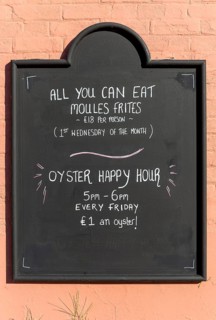 ALL YOU CAN EAT
MOULES FRITES
~ £18 PER PERSON ~
(1ST WEDNESDAY OF THE MONTH)
OYSTER HAPPY HOUR
5PM - 6PM
EVERY FRIDAY
£1 an oyster!